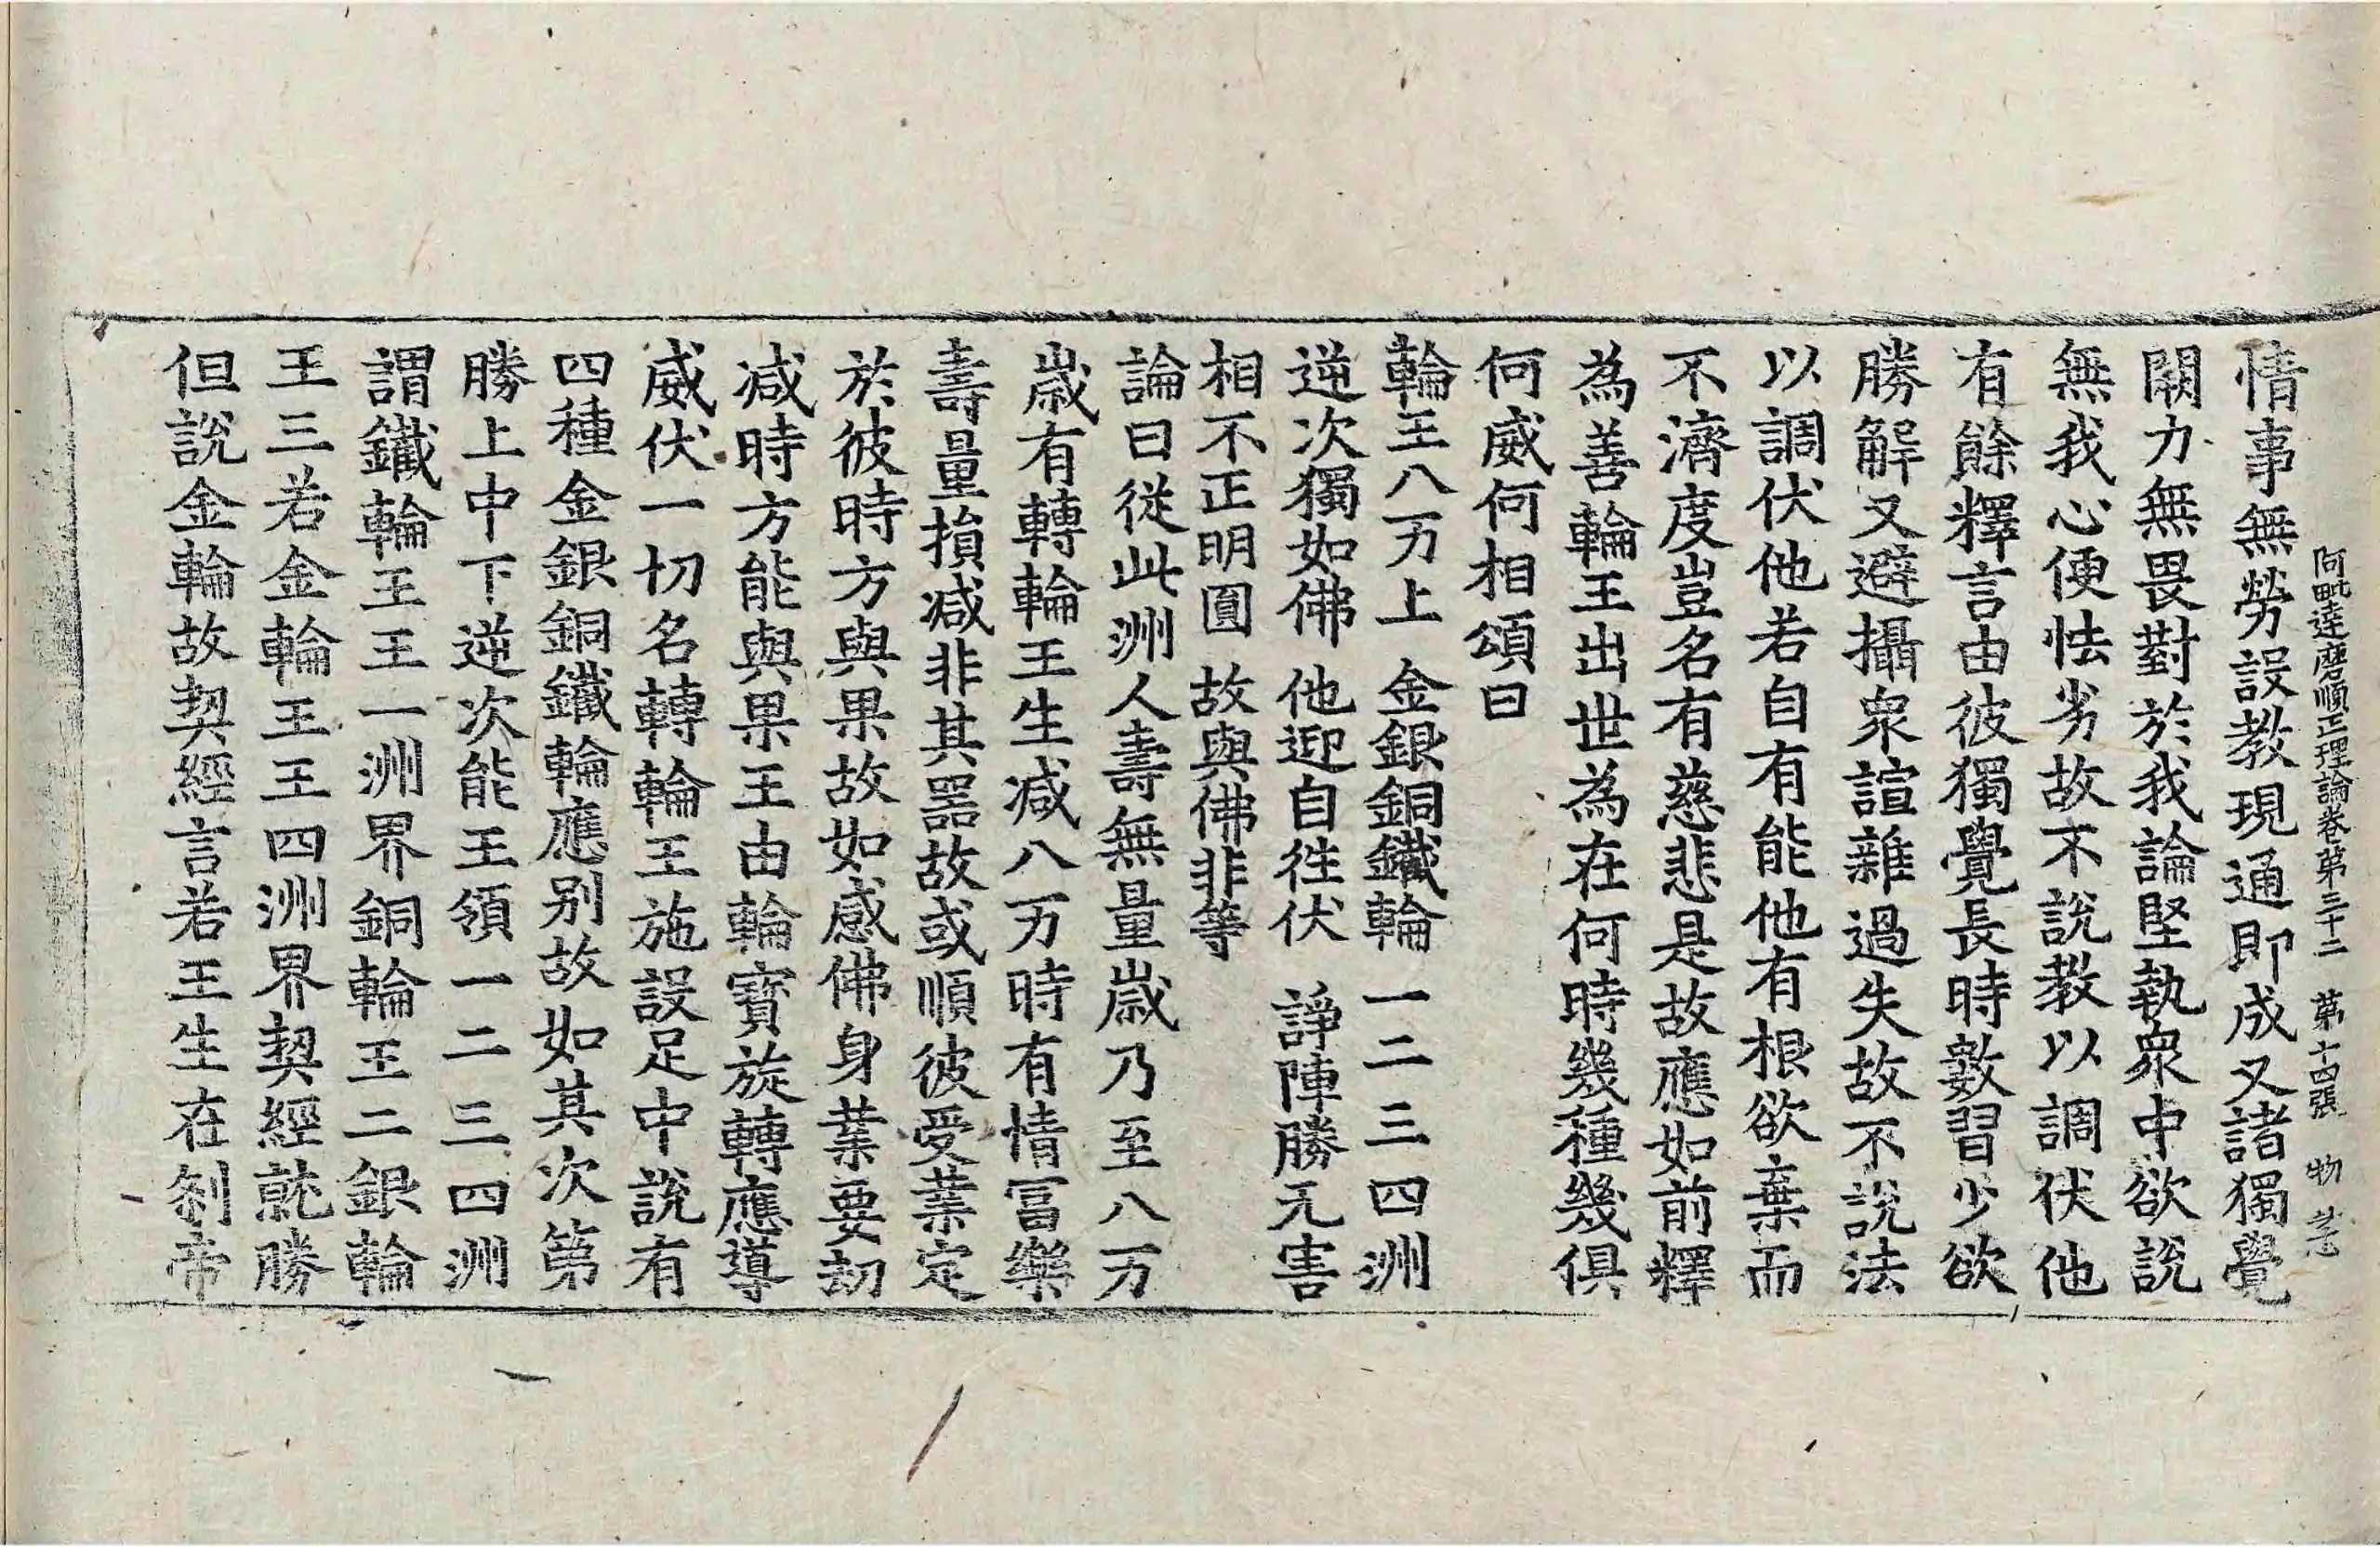 阿毗達磨順正理論卷第三十二 第十四張 物
情事無勞設教現通即成又諸獨覺
闕力無畏對於我論堅執衆中欲說
無我心便怯劣故不說教以調伏他
有餘釋言由彼獨覺長時數習少欲
勝解又避攝衆諠雜過失故不說法
以調伏他若自有能他有根欲棄而
不濟度豈名有慈悲是故應如前釋
為善輪王出世為在何時幾種幾俱
何威何相頌曰
輪王八万上 金銀銅鐵輪 一二三四洲
逆次獨如佛 他迎自徃伏 諍陣勝无害
相不正明圓 故與佛非等
論曰從此洲人壽無量歲乃至八万
歲有轉輪王生減八万時有情冨樂
壽量損减非其器故或順彼受業定
於彼時方與果故如感佛身業要劫
减時方能與果王由輪寶旋轉應導
威伏一切名轉輪王施設足中說有
四種金銀銅鐵輪應别故如其次第
勝上中下逆次能王領一二三四洲
謂鐵輪王王一洲界銅輪王二銀輪
王三若金輪王王四洲界契經就勝
但說金輪故契經言若王生在刹帝